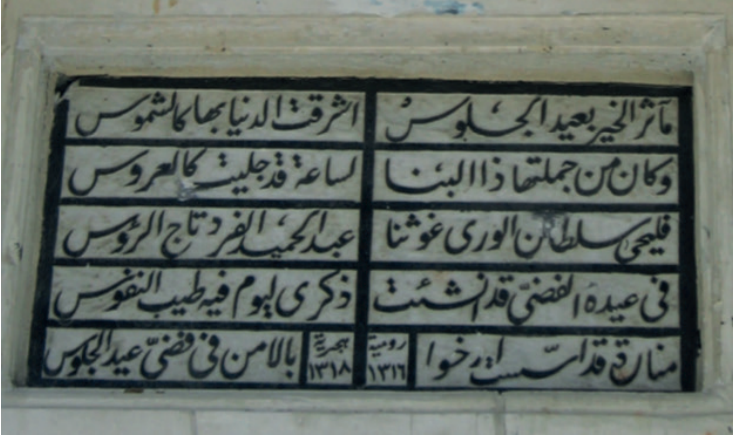 مآثر الخير بعيد الجلوس اشرقت الدنيا بها كالشموس
وكان من جملتها ذا البنا لساعة قد جليت كالعروس
فليحيى سلطان الورى غوثنا عبد الحميد الفرد تاج الرؤس
فى عيده الفضىّ قد انشئت ذكرى ليوم فيه طيب النفوس
منارة قد اسّست ارخوا رومية ١٣١٦ هجرية ١٣١٨ بالامن فى فضىّ عيد الجلوس